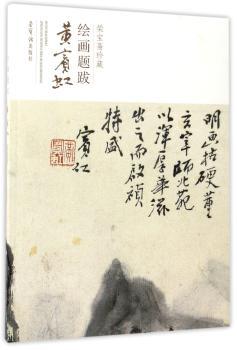 荣宝斋珍藏
黄宾虹
绘画题跋
荣宝斋出版社
明画枯硬董
玄宰师北苑
以浑厚华滋
出之而启祯
特盛
宾虹